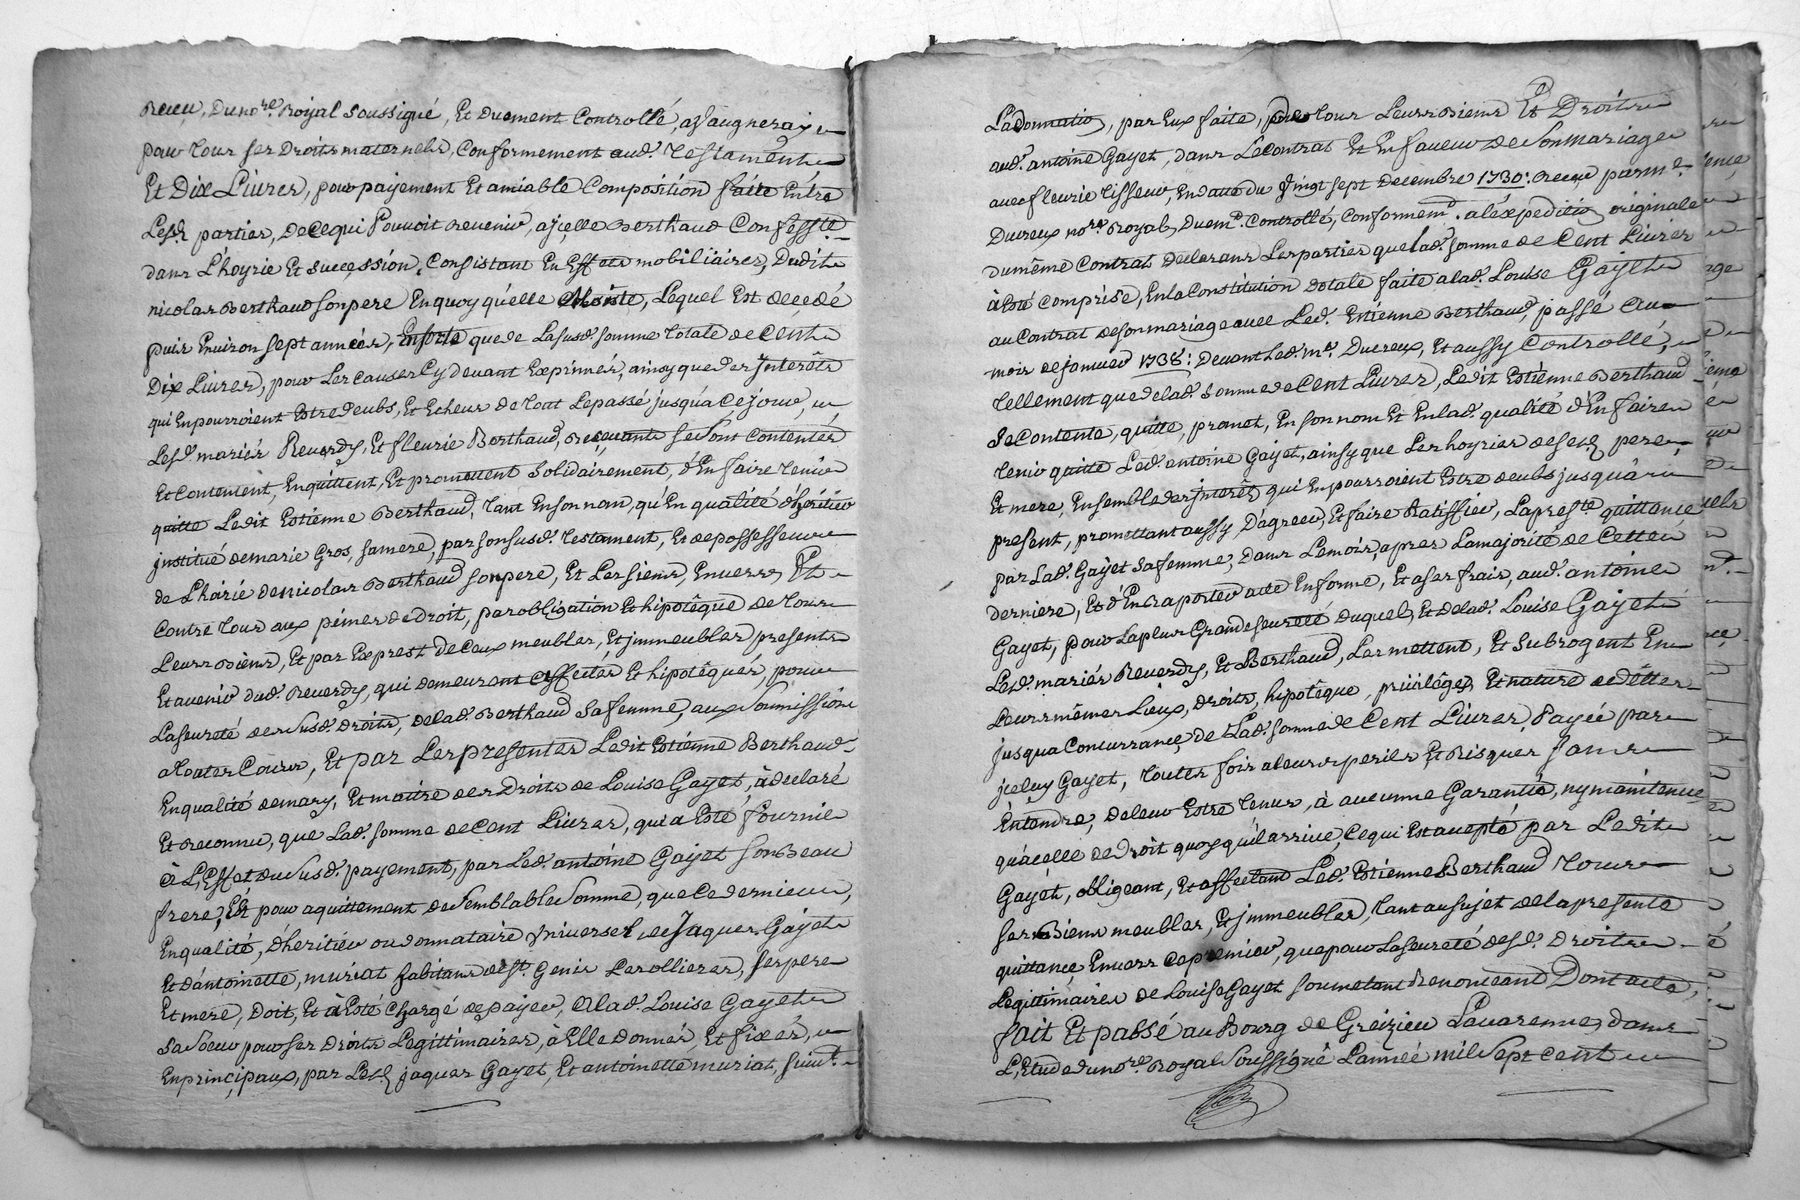 Receu, Du no.re Royal soussigné, Et Duement Controllé, a Vaugneray
pour tour ses Droits maternels, Conformement aud.t testament
Et Dix Livres, pour payement Et amiable Composition faite Entre
Lesd. parties, de ce qui Pouvoit revenir, a jcelle Berthaud Confess.te
dans L'hoyrie Et succession, Consistant En Effets mobiliaires, Dudit
nicolas Berthaud son pere En quoy qu'elle Consiste, Lequel Est decedé
puis Environ sept années, Ensorte que de La susd. somme totale de Cent
Dix Livres, pour Les causes Cy devant Exprimés, ainsy que des Interêts
qui En pourroient Estre deubs, Et Echeus de tout Le passé jusqu'à Ce jour,
Lesd. mariés Reverdy, Et fleurie Berthaud, se sont Contentés
Et Contentent, En quittent, Et promettent solidairement, d'En faire tenir
quitte Ledit Estienne Berthaud, tant En son nom, qu'En qualité d'héritier
jnstitué de marie Gros, sa mere, par son susd. testament, Et de possesseur
de L'hoirie de nicolas Berthaud son pere, Et Les siens, Envers Et
Contre tous aux peines de droit, par obligation Et hipotêque de tous
Leurs Biens, Et par Exprest de Ceux meubles, Et jmmeubles presents
Et avenir dud. Reverdy, qui demeurent affectés Et hipotêqués, pour
La seureté des susd. Droits, de lad. Berthaud sa femme, aux soumissions
a toutes Cours, Et par Les presentes Ledit Estienne Berthaud
En qualité de mary, Et maitre des Droits de Louise Gayet, à declaré
Et reconnu, que Lad. somme de Cent Livres, qui a Esté fournie
à L'Effet du susd. payement, par Led. antoine Gayet son Beau
frere, Est pour aquittement de semblable somme, que Ce dernier,
En qualité, d'heritier ou donnataire Vniversel de Jaques Gayet
Et d'antoinette, muriat habitans de St. Genis Les ollieres, ses pere
Et mere, Doit, Et à Esté Chargé de payer, a Lad. Louise Gayet
sa soeur pour ses Droits Legittimaires, à Elle donnés, Et fixés,
En principaux, par Lesd. jaques Gayet, Et antoinette muriat, suiv.t
La donnation, par Eux faite, de tous Leurs Biens Et Droits
aud. antoine Gayet, dans Le contrat Et En faveur de son mariage
avec fleurie tisseur, En datte du vingt sept Decembre 1730. Receu par m.e
Ducreux no.re Royal, Duem.t Controllé, Conformem.t a l'Expedition originale
du même Contrat declarans Les parties que lad. somme de Cent Livres
à Esté comprise, En la Constitution dotale faite a lad. Louise Gayet
au Contrat de son mariage avec Led. Estienne Berthaud, passé au
mois de janvier 1738. Devant Led. m.e Ducreux, Et aussy Controllé,
tellement que de lad. somme de Cent Livres, Ledit Estienne Berthaud
se Contente, quitte, promet, En son nom Et En lad. qualité d'En faire
tenir quitte Led. antoine Gayet, ainsy que Les hoyries de sesd. pere
Et mere, Ensemble des jnterêts qui En pourroient Estre deubs jusqu'à
present, promettant aussy D'agreer, Et faire Ratiffier, La pres.te quittance
par Lad. Gayet sa femme, Dans Le mois, apres La majorité de Cette
derniere, Et d'En Raporter acte En forme, Et a ses frais, aud. antoine
Gayet, pour La plus Grande seureté duquel, Et de lad. Louise Gayet
Lesd. mariés Reverdy, Et Berthaud, Les mettent, Et subrogent En
Leurs mêmes Lieux, droits, hipotêque, privilêges, Et nature de dêttes
jusqua Concurrance, de Lad. somme de Cent Livres Payée par
jceluy Gayet, toutes fois a leurs perils Et Risques sans
Entendre, de leur Estre tenus, à aucunne Garantie, ny manitenue
qu'à celle de Droit quoy qu'il arrive, Ce qui Est accepté par Ledit
Gayet, obligeant, Et affectant Led. Estienne Berthaud tous
ses Biens meubles, Et jmmeubles, tant au sujet de la presente
quittance Envers Ce premier, que pour La seureté desd. Droits
Legittimaires de Louise Gayet soumetant Renonceant Dont acte,
fait Et passé au Bourg de Greizieu Lavarenne, dans
L'Etude du no.re Royal soussigné L'année mil sept cent